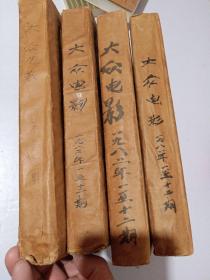 大众电影
大众电影
一九八六年一至十二期
大众电影
一九八二年一至十二期
大众电影
一九八一年一至十二期